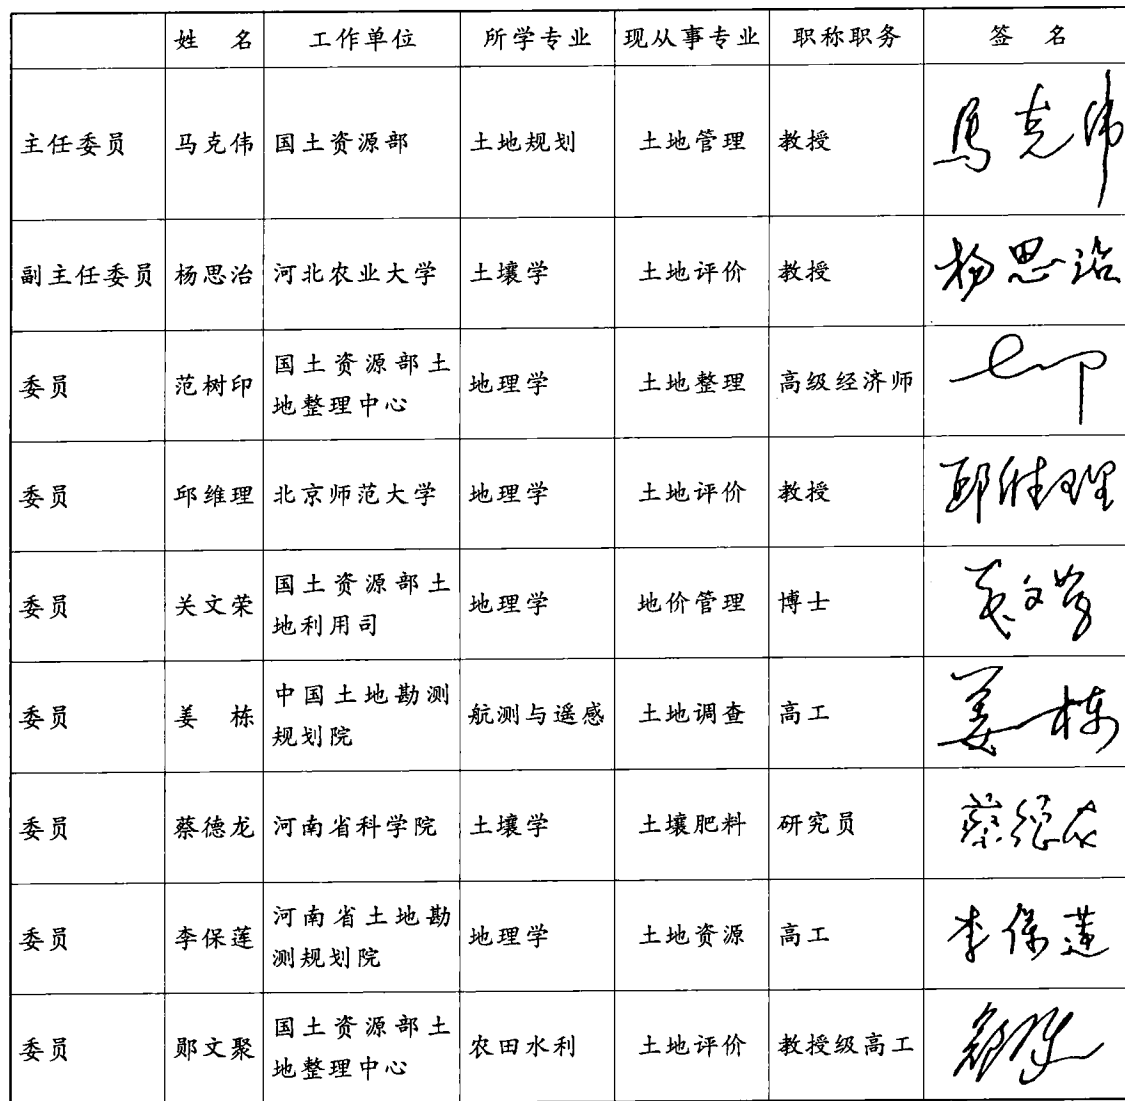 姓 名 工作单位 所学专业 现从事专业 职称职务 签 名
主任委员 马克伟 国土资源部 土地规划 土地管理 教授 马克伟
副主任委员 杨思治 河北农业大学 土壤学 土地评价 教授 杨思治
委员 范树印 国土资源部土地整理中心 地理学 土地整理 高级经济师
委员 邱维理 北京师范大学 地理学 土地评价 教授 邱维理
委员 关文荣 国土资源部土地利用司 地理学 地价管理 博士
委员 姜 栋 中国土地勘测规划院 航测与遥感 土地调查 高工 姜栋
委员 蔡德龙 河南省科学院 土壤学 土壤肥料 研究员 蔡德龙
委员 李保莲 河南省土地勘测规划院 地理学 土地资源 高工 李保莲
委员 郧文聚 国土资源部土地整理中心 农田水利 土地评价 教授级高工